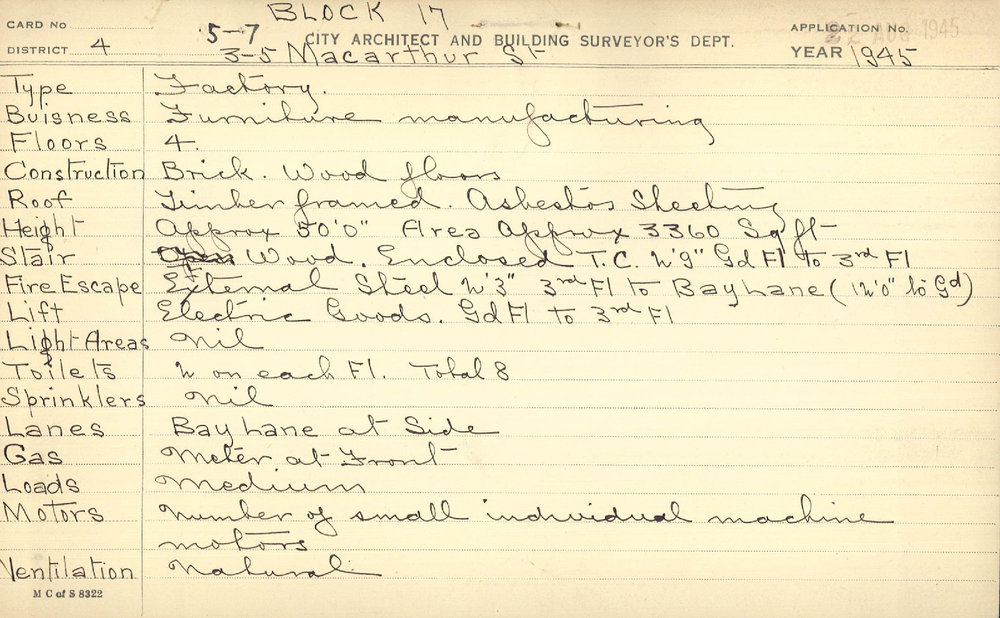 BLOCK 17
CARD No
5-7 CITY ARCHITECT AND BUILDING SURVEYOR'S DEPT.
APPLICATION No. 22 AUG 1945
DISTRICT 4
3-5 Macarthur St
YEAR 1945
Type Factory.
Buisness Furniture manufacturing
Floors 4.
Construction Brick. Wood floors
Roof Timber framed. Asbestos Sheeting
Height Approx 50'0" Area Approx 3360 Sq ft
Stair Open Wood. Enclosed T.C. 2'9" Gd Fl to 3rd Fl
Fire Escape External Steel 2'3" 3rd Fl to Bay Lane (12'0" to Gd)
Lift Electric Goods. Gd Fl to 3rd Fl
Light Areas Nil
Toilets 2 on each Fl. Total 8
Sprinklers Nil
Lanes Bay Lane at Side
Gas Meter at Front
Loads Medium
Motors Number of small individual machine
motors
Ventilation Natural
M C of S 8322